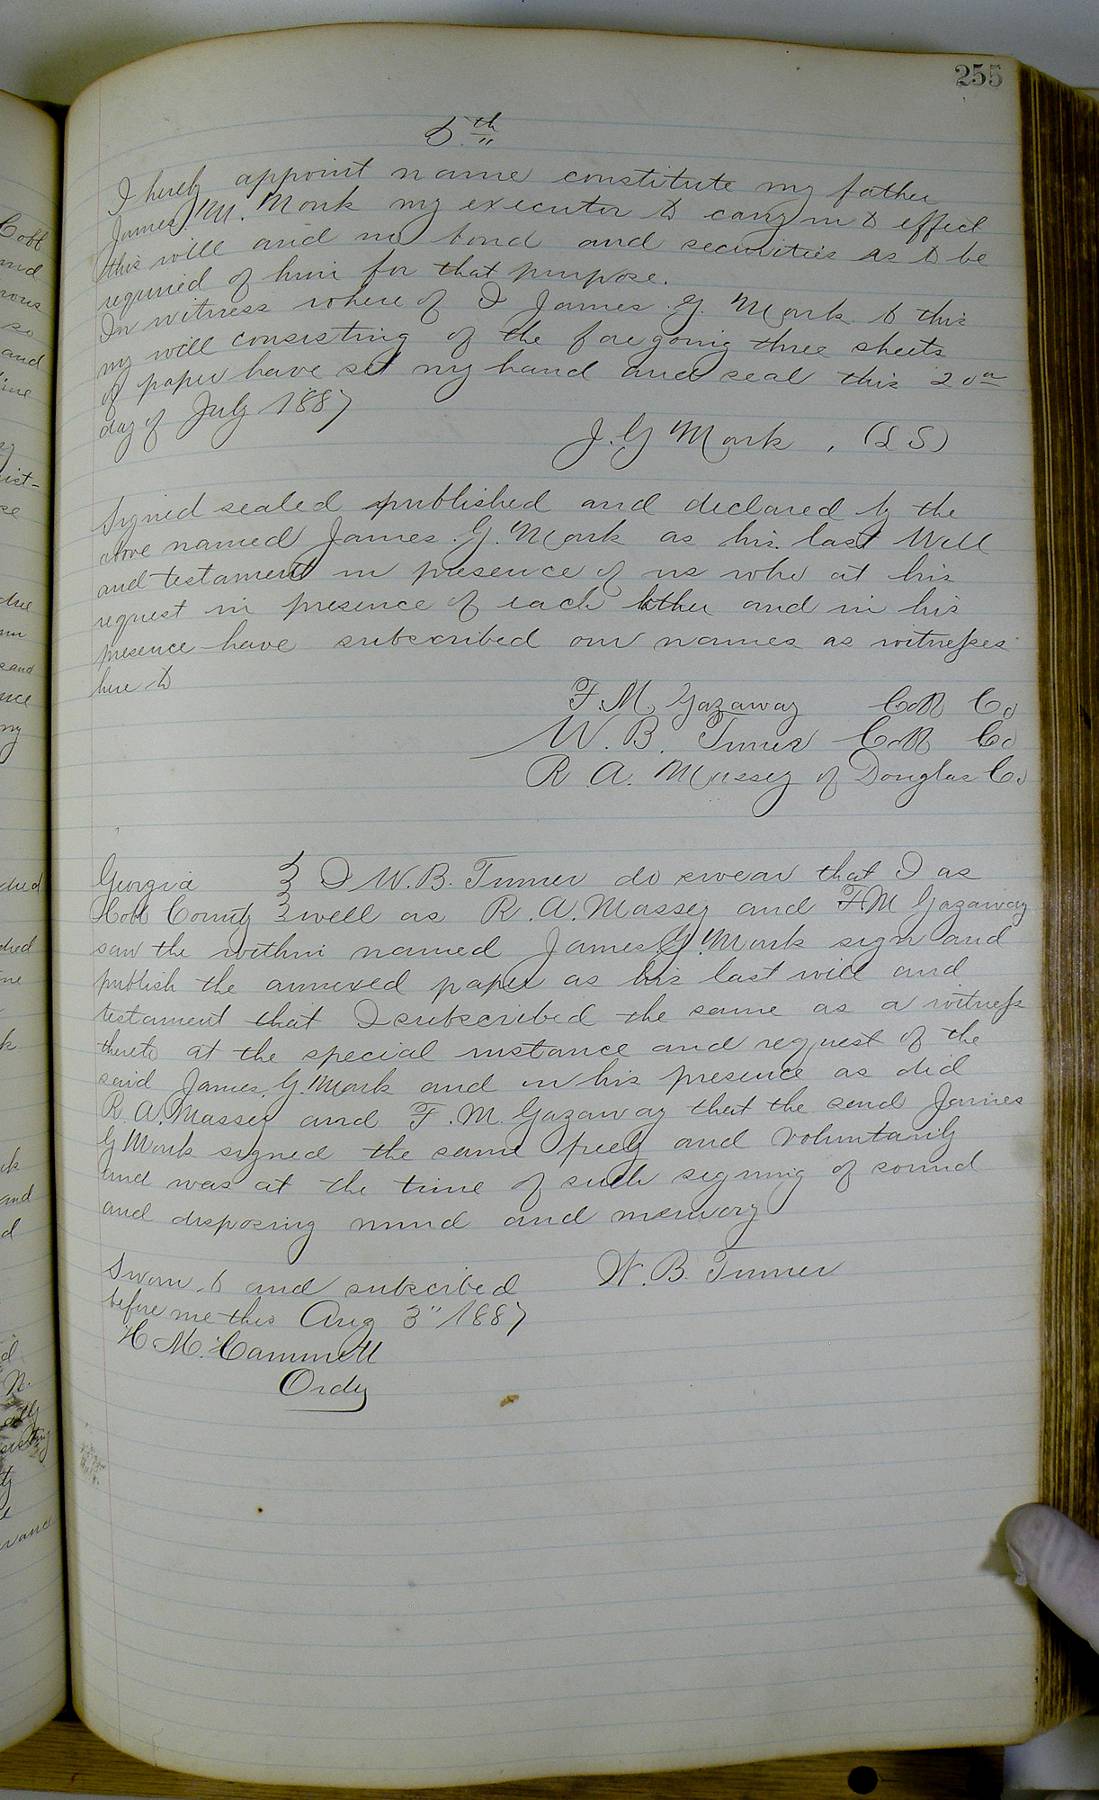 255
5th
I hereby appoint name constitute my father
James M. Monk my executor to carry in to effect
this will and no bond and securities as to be
required of him for that purpose.
In witness where of I James G. Monk to this
my will consisting of the foregoing three sheets
of paper have set my hand and seal this 20th
day of July 1887
J. G Monk , (LS)
Signed sealed published and declared by the
above named James. G. Monk as his last Will
and testament in presence of us who at his
request in presence of each other and in his
presence have subscribed our names as witnesses
here to
F. M. Gazaway Cobb Co
W. B. Turner Cobb Co
R. A. Massey of Douglas Co
Georgia } I W. B. Turner do swear that I as
Cobb County } well as R. A. Massey and F M Gazaway
saw the within named James G. Monk sign and
publish the annexed paper as his last will and
testament that I subscribed the same as a witness
thereto at the special instance and request of the
said James. G. Monk and in his presence as did
R. A. Massey and F. M. Gazaway that the said James
G Monk signed the same freely and voluntarily
and was at the time of such signing of sound
and disposing mind and memory
Sworn to and subscribed W. B. Turner
before me this Aug 3" 1887
H. M. Cammett
Ordy